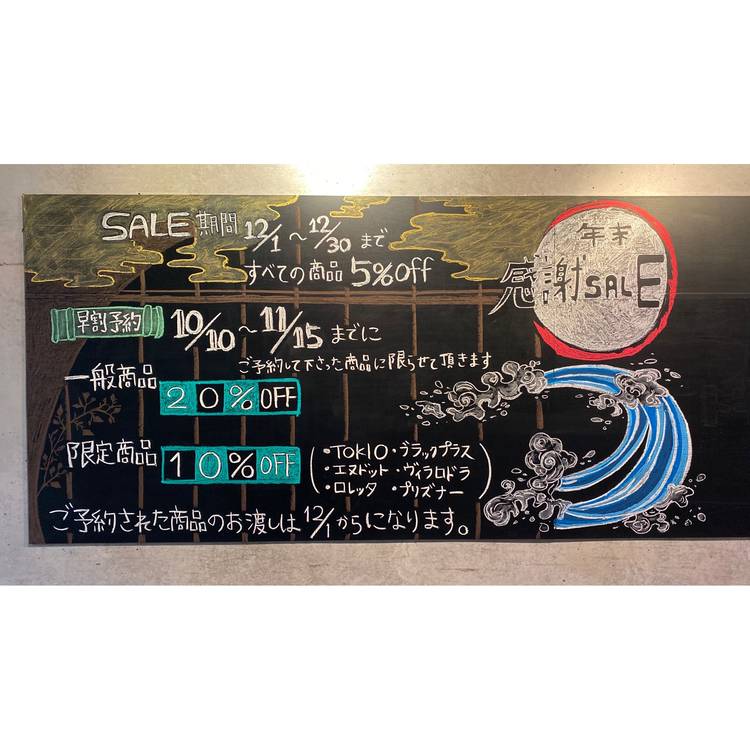 SALE 期間 12/1 〜 12/30 まで
すべての商品 5%off
年末
感謝SALE
早割予約 10/10 〜 11/15 までに
ご予約して下さった商品に限らせて頂きます
一般商品 20%OFF
限定商品 10%OFF
(・TOKIO ・ブラックプラス
・エヌドット ・ヴィラロドラ
・ロレッタ ・プリズナー)
ご予約された商品のお渡しは 12/1 からになります。